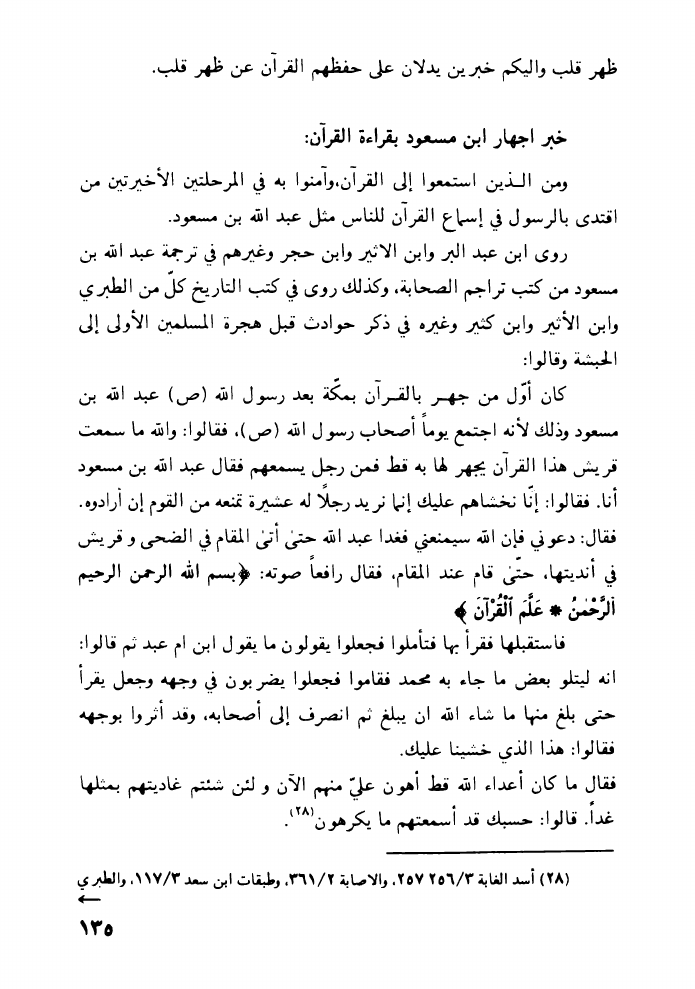 ظهر قلب واليكم خبرين يدلان على حفظهم القرآن عن ظهر قلب.
خبر اجهار ابن مسعود بقراءة القرآن:
ومن الـذين استمعوا إلى القرآن،وآمنوا به في المرحلتين الأخيرتين من
اقتدى بالرسول في إسماع القرآن للناس مثل عبد الله بن مسعود.
روى ابن عبد البر وابن الاثير وابن حجر وغيرهم في ترجمة عبد الله بن
مسعود من كتب تراجم الصحابة، وكذلك روى في كتب التاريخ كلّ من الطبري
وابن الأثير وابن كثير وغيره في ذكر حوادث قبل هجرة المسلمين الأولى إلى
الحبشة وقالوا:
كان أوّل من جهـر بالقـرآن بمكّة بعد رسول الله (ص) عبد الله بن
مسعود وذلك لأنه اجتمع يوماً أصحاب رسول الله (ص)، فقالوا: والله ما سمعت
قريش هذا القرآن يجهر لها به قط فمن رجل يسمعهم فقال عبد الله بن مسعود
أنا. فقالوا: إنّا نخشاهم عليك إنما نريد رجلًا له عشيرة تمنعه من القوم إن أرادوه.
فقال: دعوني فإن الله سيمنعني فغدا عبد الله حتىٰ أتىٰ المقام في الضحى و قريش
في أنديتها، حتّىٰ قام عند المقام، فقال رافعاً صوته: ﴿بسم الله الرحمن الرحيم
ٱلرَّحْمٰنُ * عَلَّمَ ٱلْقُرْآنَ ﴾
فاستقبلها فقرأ بها فتأملوا فجعلوا يقولون ما يقول ابن ام عبد ثم قالوا:
انه ليتلو بعض ما جاء به محمد فقاموا فجعلوا يضربون في وجهه وجعل يقرأ
حتى بلغ منها ما شاء الله ان يبلغ ثم انصرف إلى أصحابه، وقد أثروا بوجهه
فقالوا: هذا الذي خشينا عليك.
فقال ما كان أعداء الله قط أهون عليّ منهم الآن و لئن شئتم غاديتهم بمثلها
غداً. قالوا: حسبك قد أسمعتهم ما يكرهون(٢٨).
(٢٨) أسد الغابة ٢٥٦/٣ ٢٥٧، والاصابة ٣٦١/٢، وطبقات ابن سعد ١١٧/٣، والطبري
←
١٣٥